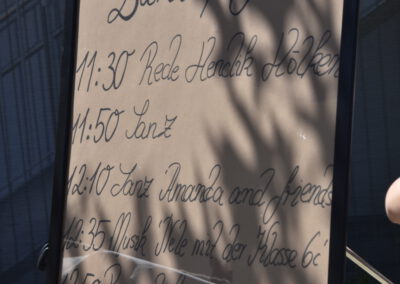 11:30 Rede Hendrik Hölken
11:50 Tanz
12:10 Tanz "Amanda and friends
12:35 Musik "Nele mit der Klasse 6c"
12:50